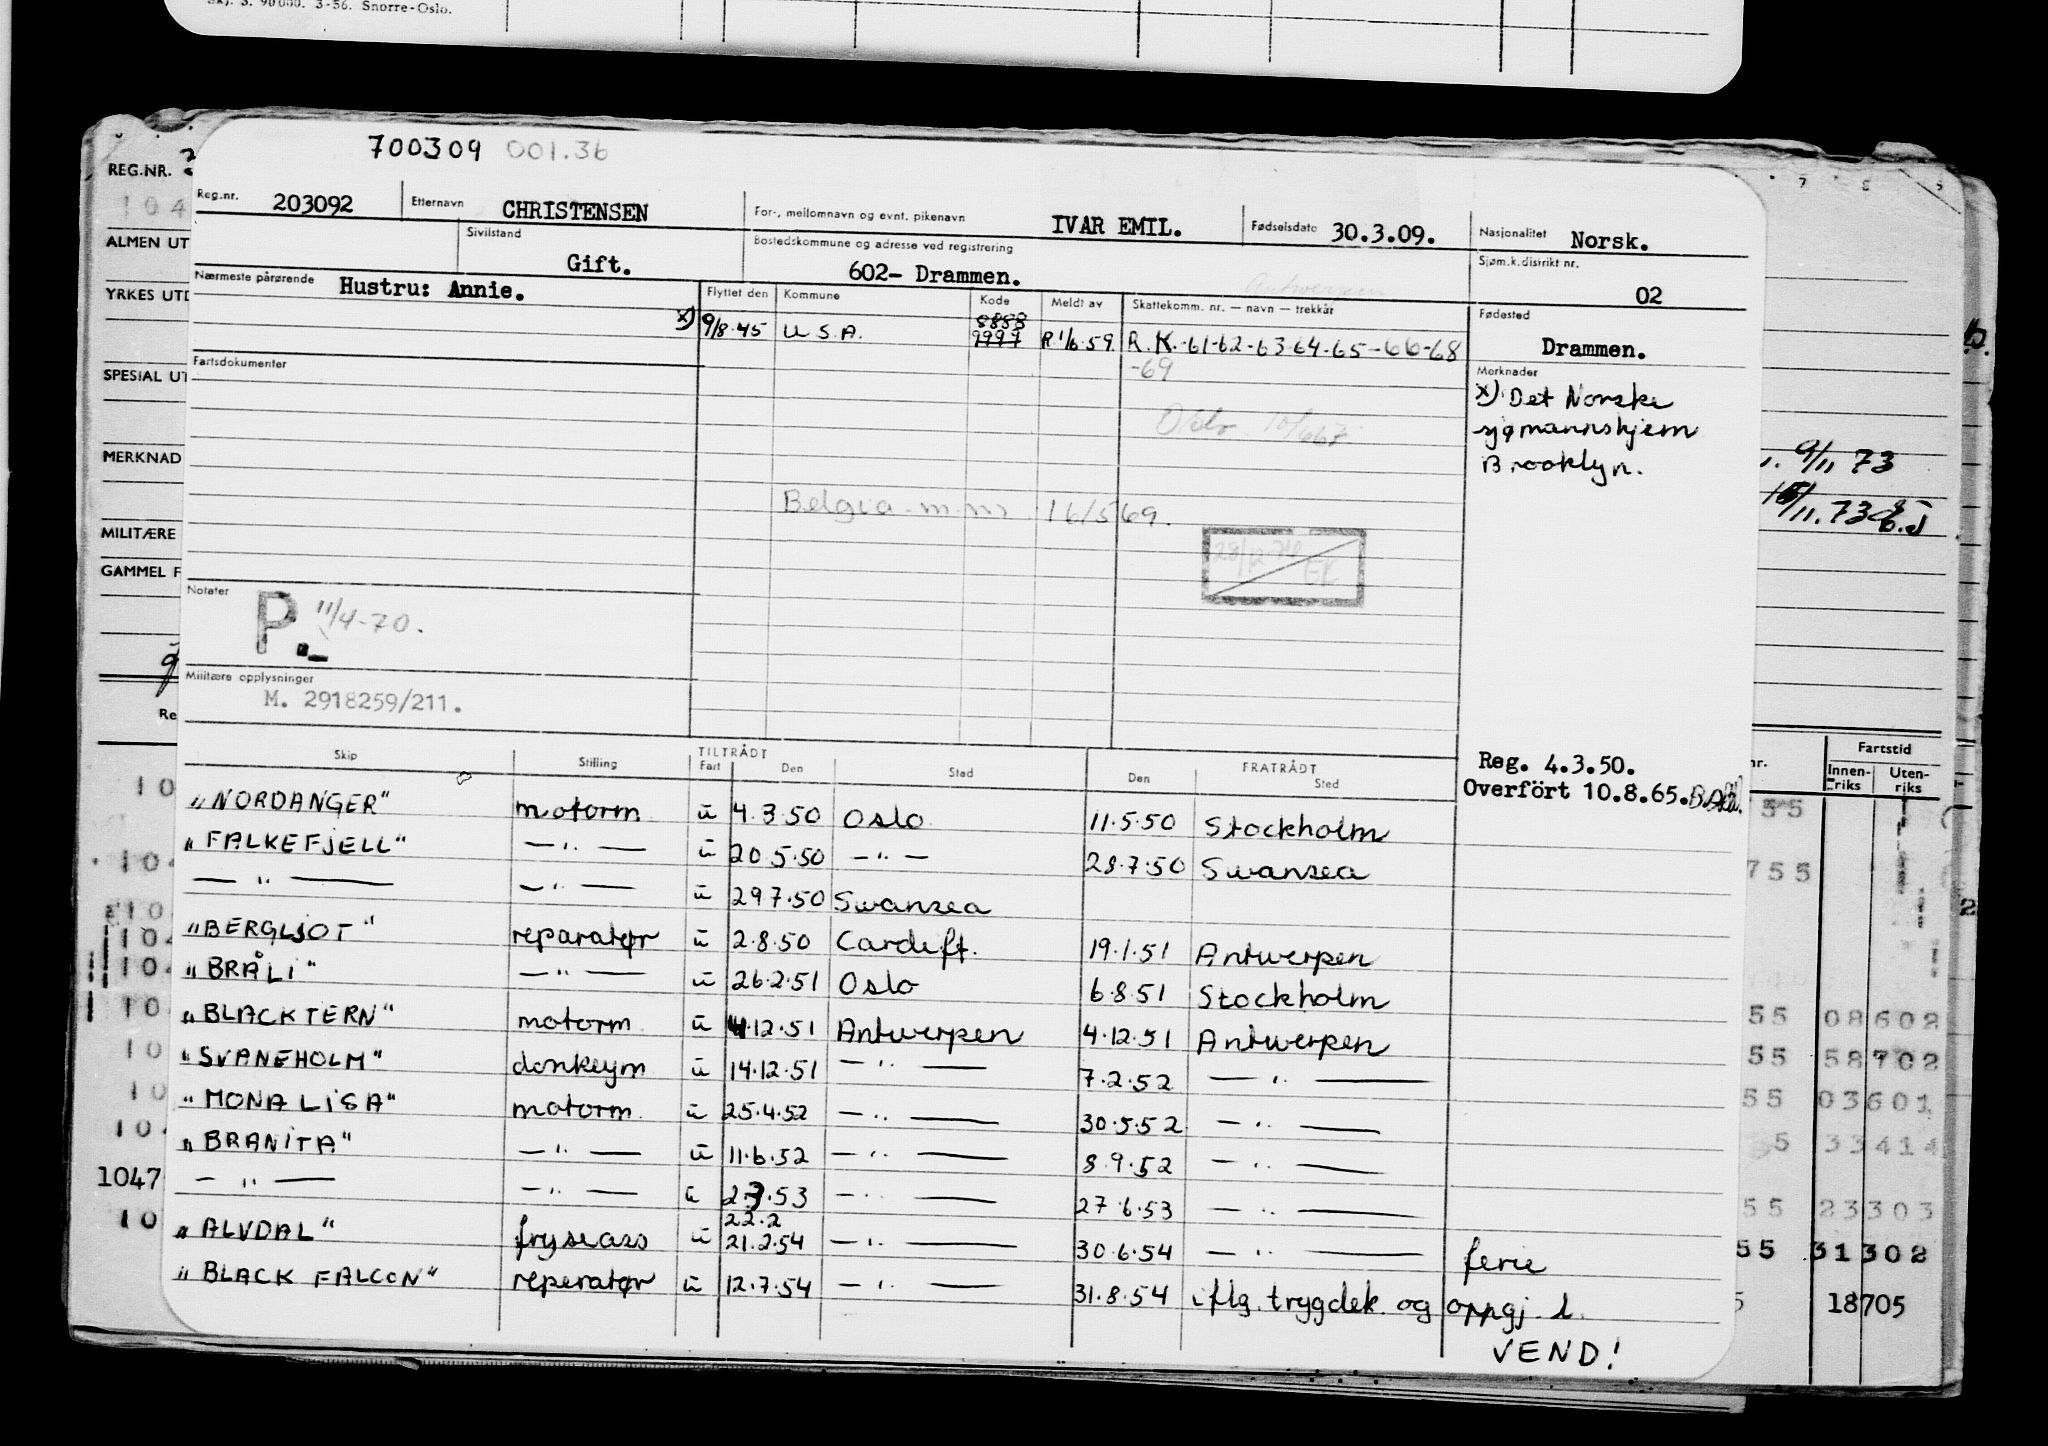 Skj. 3. 90000. 3-56. Snorre-Oslo.
700309 001.36
REG.NR.
Reg.nr. 203092 Etternavn CHRISTENSEN For-, mellomnavn og evnt. pikenavn IVAR EMIL. Fødselsdato 30.3.09. Nasjonalitet Norsk.
104
ALMEN UT
Sivilstand Gift. Bostedskommune og adresse ved registrering 602- Drammen. Sjøm.k.distrikt nr. 02
YRKES UTD
Nærmeste pårørende Hustru: Annie. Flyttet den Kommune Kode Meldt av Skattekomm. nr. — navn — trekkår Fødested
Antwerpen
x) 9/8.45 U.S.A. 8888 9999 R 1/6.59 R.K.-61-62-63.64.65-66-68 Drammen.
-69
SPESIAL UT
Fartsdokumenter
Merknader
x) Det Norske
sjømannshjem
Brooklyn.
Oslo 10/667
MERKNAD
9/11 73
Belgia m.m. 16/569.
15/11.73
MILITÆRE
28/12.76 EK
GAMMEL F
Notater
P. 11/4-70.
Militære opplysninger
M. 2918259/211.
Re
Skip Stilling TILTRÅDT Fart Den Sted FRATRÅDT Den Sted
Reg. 4.3.50.
Overført 10.8.65.
nr. Fartstid
Innen-riks Uten-riks
"NORDANGER" motorm u 4.3.50 Oslo 11.5.50 Stockholm
"FALKEFJELL" —"— u 20.5.50 —"— 28.7.50 Swansea
—"— —"— u 29.7.50 Swansea
"BERGLJOT" reparatør u 2.8.50 Cardiff. 19.1.51 Antwerpen
"BRÅLI" —"— u 26.2.51 Oslo 6.8.51 Stockholm
"BLACK TERN" motorm u 4.12.51 Antwerpen 4.12.51 Antwerpen
"SVANEHOLM" donkeym u 14.12.51 —"— 7.2.52 —"—
"MONA LISA" motorm. u 25.4.52 —"— 30.5.52 —"—
"BRANITA" —"— u 11.6.52 —"— 8.9.52 —"—
—"— —"— u 2.3.53 —"— 27.6.53 —"—
22.2
"ALVDAL" fryseass u 21.2.54 —"— 30.6.54 —"— ferie
"BLACK FALCON" reperatør u 12.7.54 —"— 31.8.54 iflg. trygdek. og oppgj. l.
VEND!
1047
55
755
55 08602
55 58702
55 03601
5 33414
55 23303
55 31302
5 18705